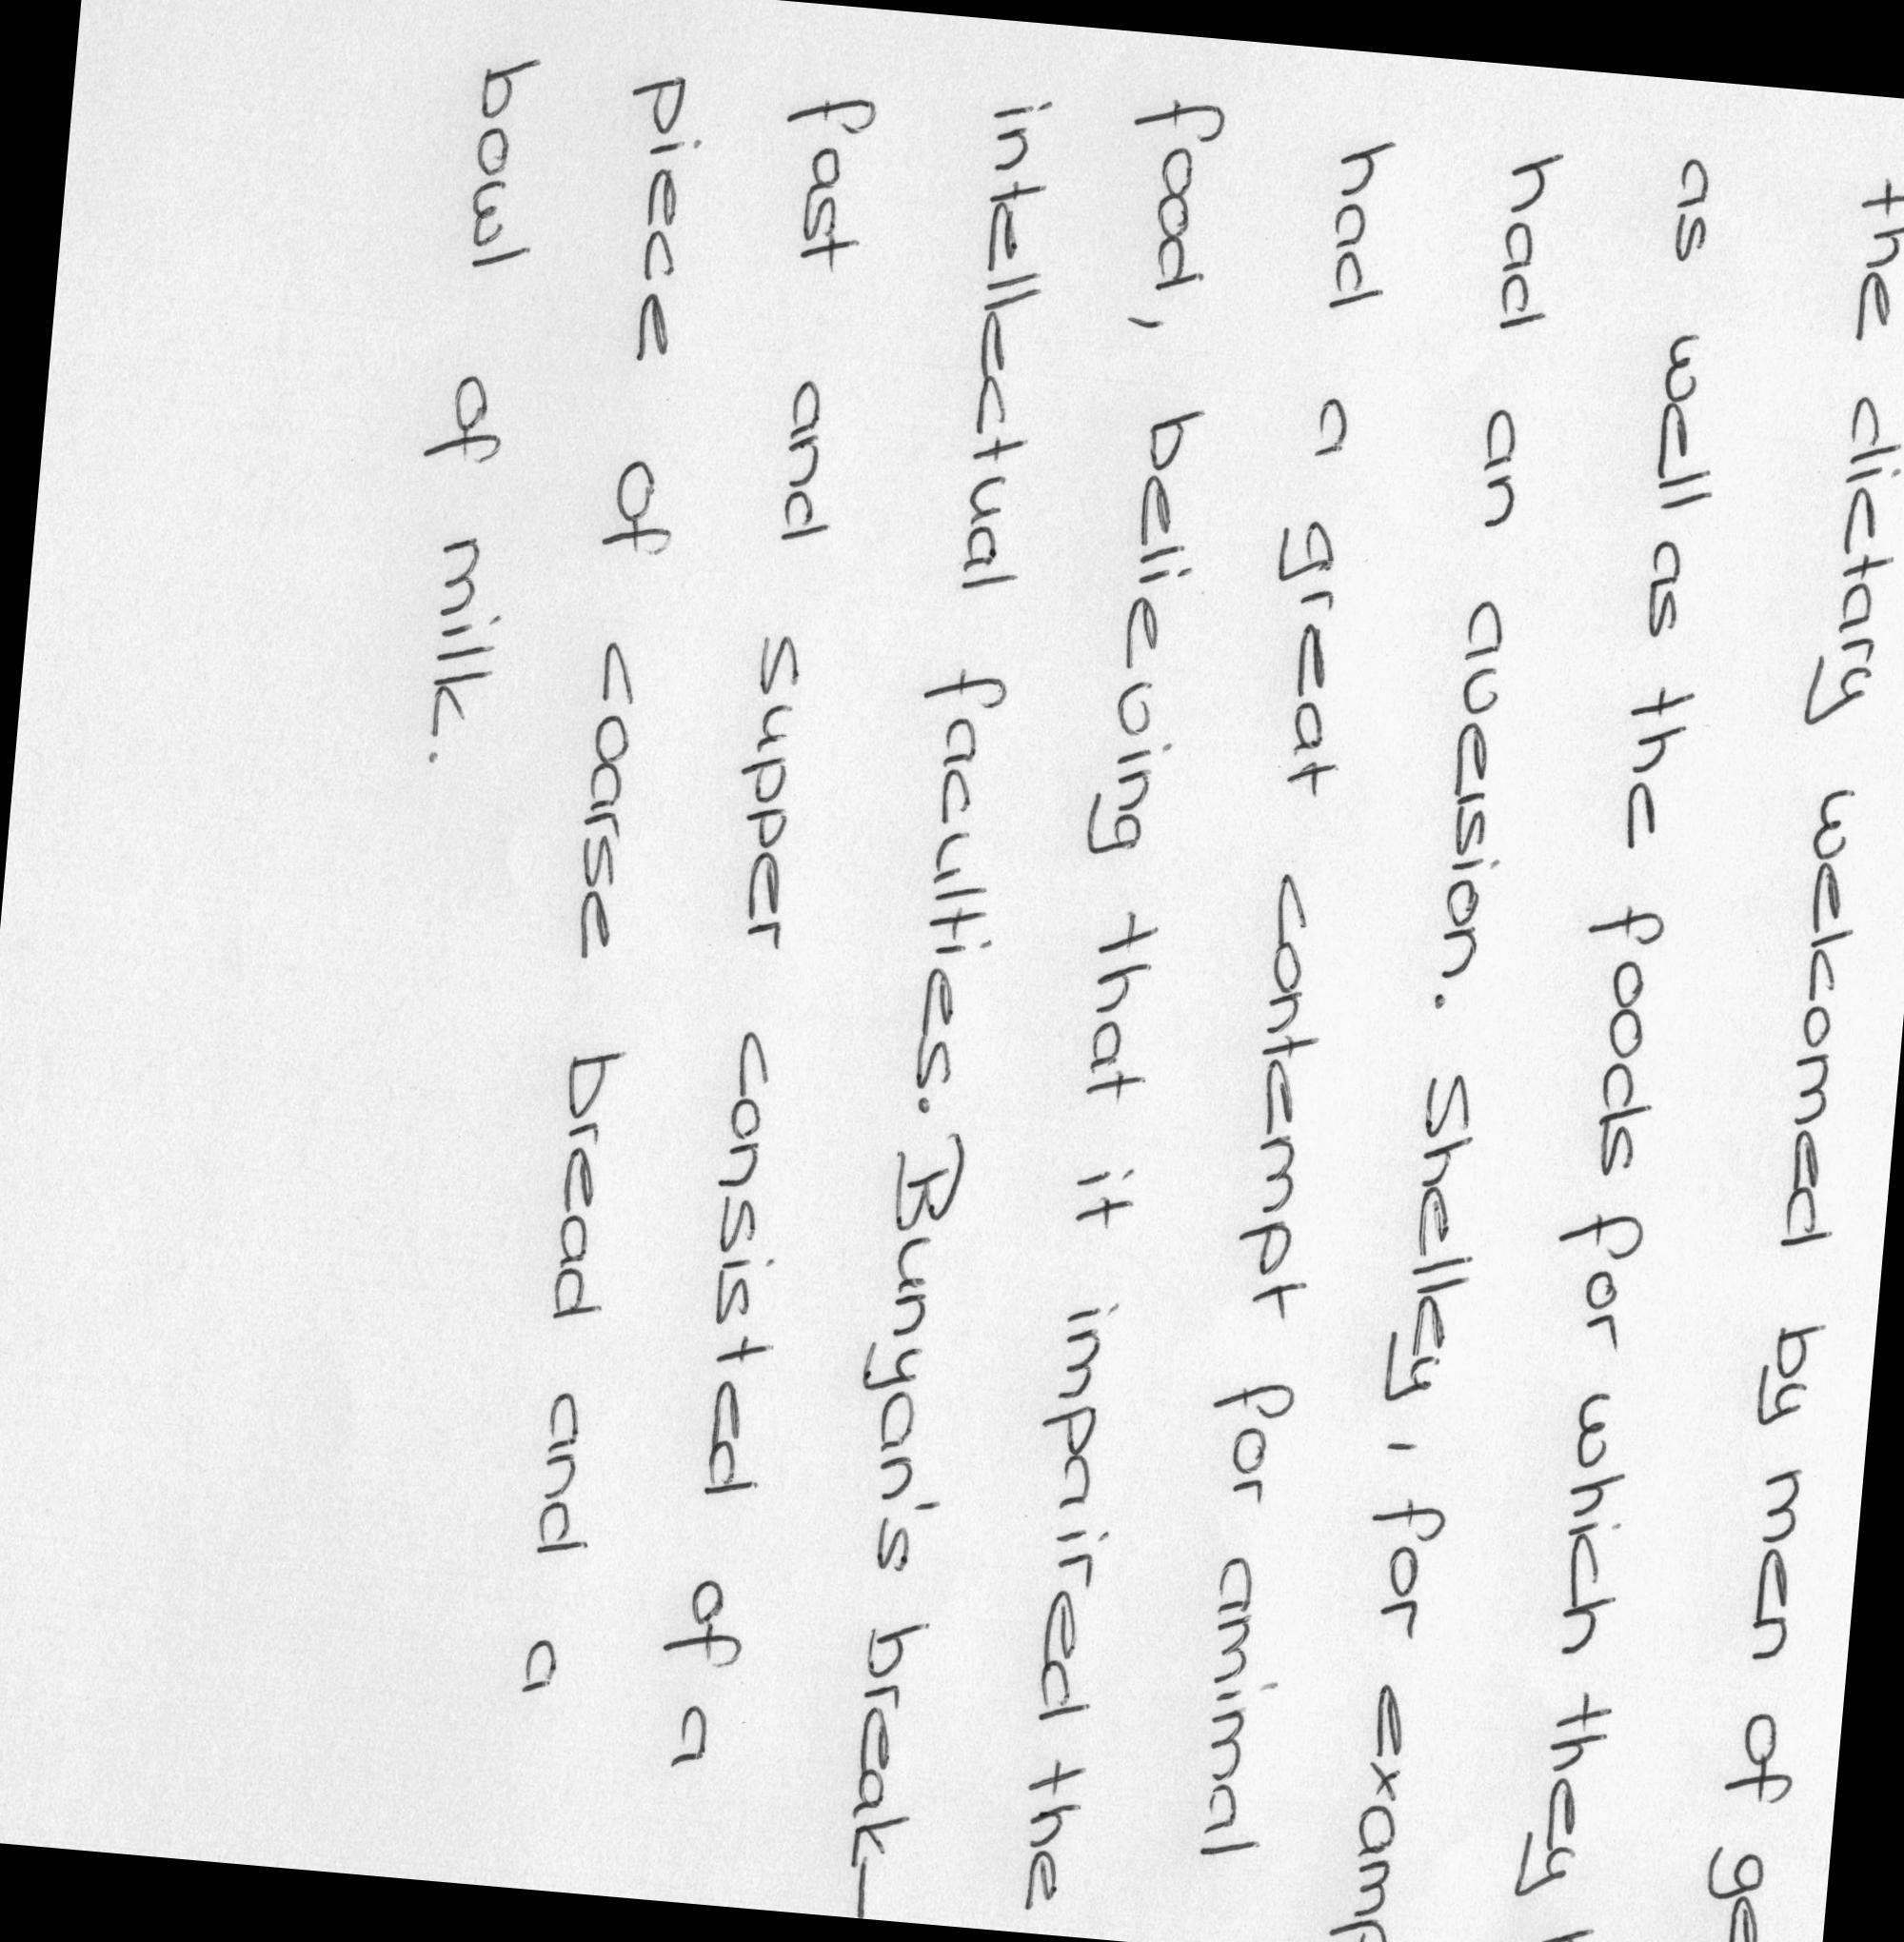 the dietary welcomed by men of ge
as well as the foods for which they
had an aversion. Shelley, for examp
had a great contempt for animal
food, believing that it impaired the
intellectual faculties. Bunyan's break-
fast and supper consisted of a
piece of coarse bread and a
bowl of milk.